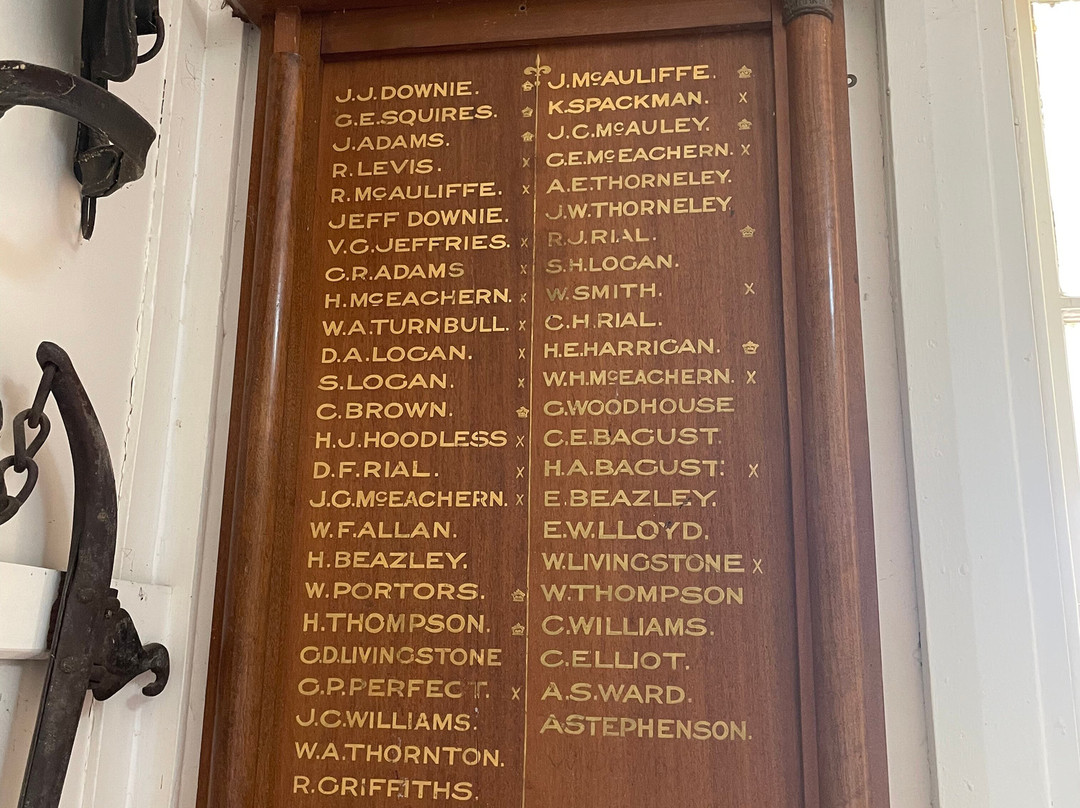 J.J.DOWNIE.
G.E.SQUIRES.
J.ADAMS.
R.LEVIS. X
R.McAULIFFE. X
JEFF DOWNIE.
V.G.JEFFRIES. X
G.R.ADAMS X
H.McEACHERN. X
W.A.TURNBULL. X
D.A.LOGAN. X
S.LOGAN. X
C.BROWN.
H.J.HOODLESS X
D.F.RIAL. X
J.G.McEACHERN. X
W.F.ALLAN.
H.BEAZLEY.
W.PORTORS.
H.THOMPSON.
G.D.LIVINGSTONE
G.P.PERFECT. X
J.C.WILLIAMS.
W.A.THORNTON.
R.GRIFFITHS.
J.McAULIFFE.
K.SPACKMAN. X
J.C.McAULEY.
G.E.McEACHERN. X
A.E.THORNELEY.
J.W.THORNELEY.
R.J.RIAL.
S.H.LOGAN.
W.SMITH. X
C.H.RIAL.
H.E.HARRIGAN.
W.H.McEACHERN. X
G.WOODHOUSE
C.E.BAGUST.
H.A.BAGUST. X
E.BEAZLEY.
E.W.LLOYD.
W.LIVINGSTONE X
W.THOMPSON
C.WILLIAMS.
C.ELLIOT.
A.S.WARD.
A.STEPHENSON.